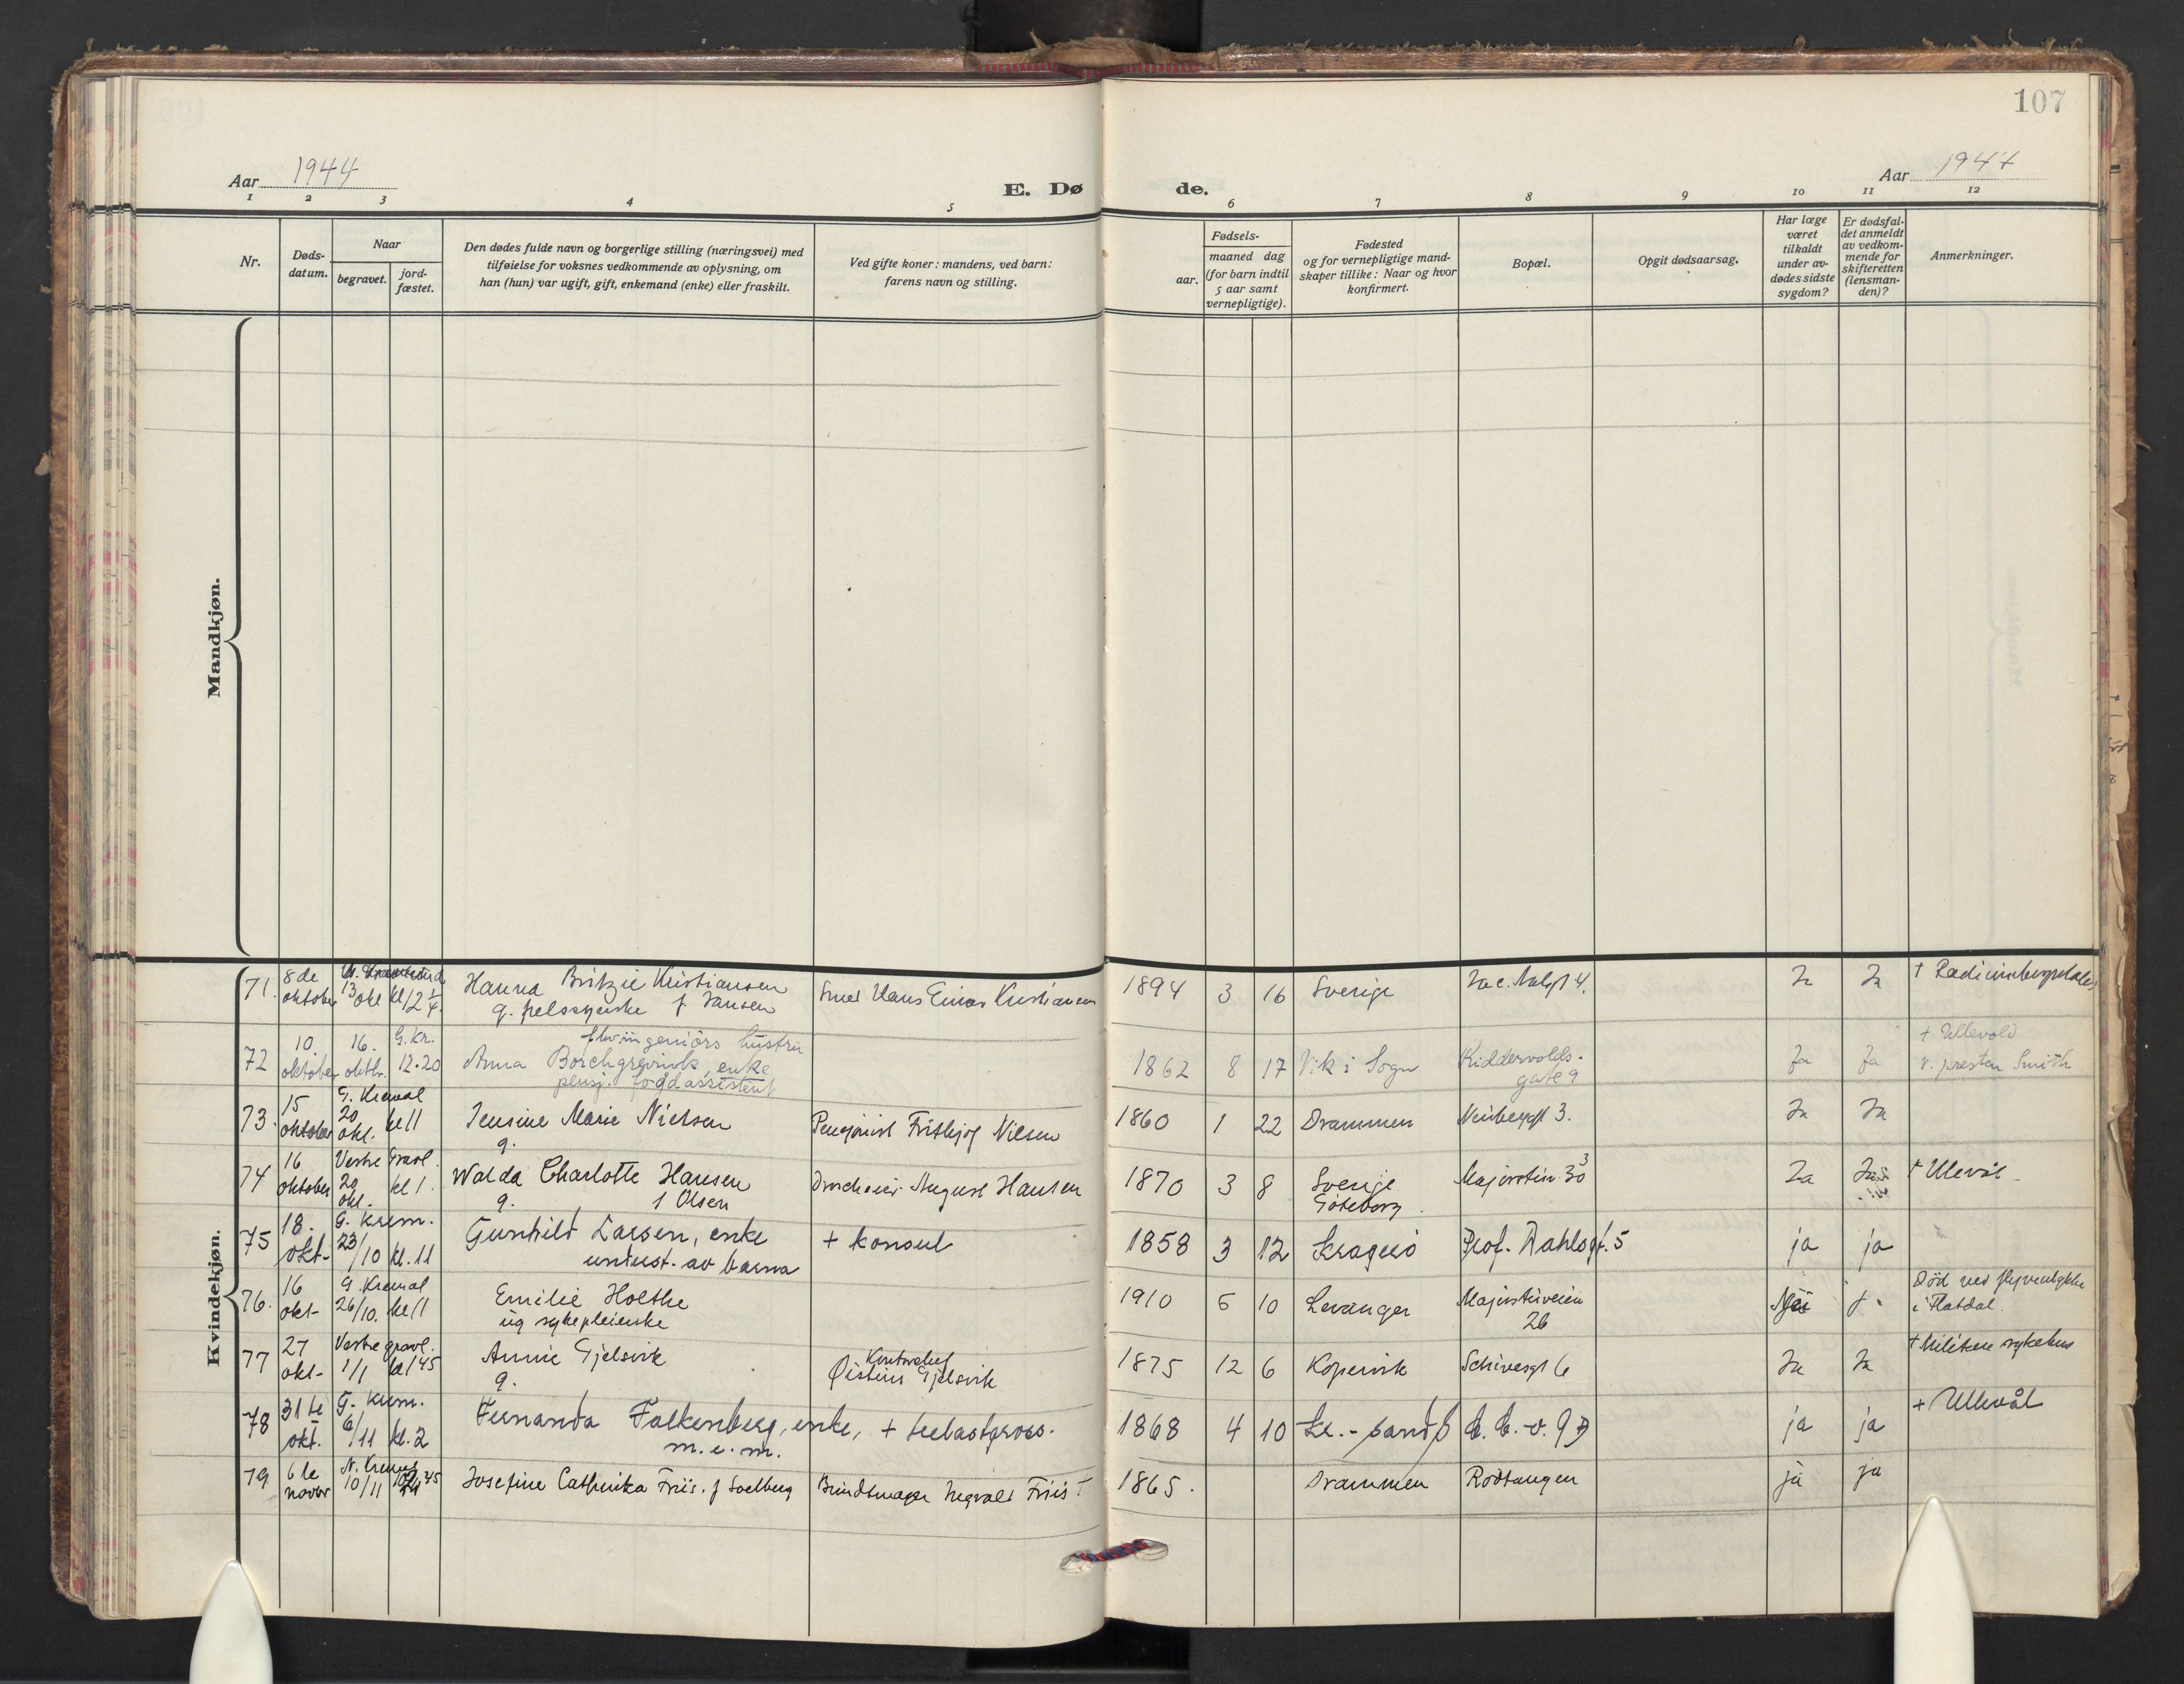 107
Aar 1944
E. Dø
de.
Aar 1944
1 2 3 4 5 6 7 8 9 10 11 12
Nr.
Døds-
datum.
Naar
begravet.
jord-
fæstet.
Den dødes fulde navn og borgerlige stilling (næringsvei) med
tilføielse for voksnes vedkommende av oplysning, om
han (hun) var ugift, gift, enkemand (enke) eller fraskilt.
Ved gifte koner: mandens, ved barn:
farens navn og stilling.
Fødsels-
aar.
maaned dag
(for barn indtil
5 aar samt
vernepligtige).
Fødested
og for vernepligtige mand-
skaper tillike: Naar og hvor
konfirmert.
Bopæl.
Opgit dødsaarsag.
Har læge
været
tilkaldt
under av-
dødes sidste
sygdom?
Er dødsfal-
det anmeldt
av vedkom-
mende for
skifteretten
(lensman-
den)?
Anmerkninger.
Mandkjøn.
Kvindekjøn.
71. 8de oktober 13 okt kl 12 1/4 Hanna Kristiansen
g. pelssyerske f Jansen
Hans Einar Kristiansen 1894 3 16 Sverige Ja Ja
72 10 oktober 16. oktbr. G. Kr. 12.20 ingeniörs hustru
Anna Borchgrevink, enke
pensj.
1862 8 17 Vik i Sogn Riddervolds-
gate 9 Ja Ja + Ullevold
v. presten Smith
73. 15 oktober G. Kremat 20 okt. kl 11 Jensine Marie Nielsen
g.
Pensjonist Fritjof Nilsen 1860 1 22 Drammen Neubergsgt 3. Ja Ja
74 16 oktober Vestre Gravl. 20 okt. kl 1. Walda Charlotte Hansen
g. f Olsen
August Hansen 1870 3 8 Sverige
Göteborg. Ja Ja + Ulevål.
75 18. okt- G. Krem. 23/10 kl. 11 Gunhild Larsen, enke
underst. av barna
+ konsul 1858 3 12 Kragerö Prof. Dahlsgt. 5 ja ja
76. 16 okt- G. Kremat 26/10. kl 11 Emilie Holthe
ug sykepleierske
1910 5 10 Levanger Majorstuveien
26 Nei Død ved flyveulykke
i Flatdal.
77 27 okt- Vestre gravl. 1/1 kl 1 45 Annie Gjelsvik
g.
Kontorchef
Øistein Gjelsvik 1875 12 6 Kopervik Schivesgt 6 Ja Ja + Militære sykehus
78 31te okt. G. Krem. 6/11 kl. 2 Fernanda Falkenberg, enke,
m. e. m.
+ trelastgross. 1868 4 10 Kr.-sand S ja ja + Ullevål
79 6te novbr N. Kremat 10/11 Josefine Cathinka Friis. f Soelberg
Bundtmager Ingvald Friis † 1865. Drammen Rödtangen ja ja